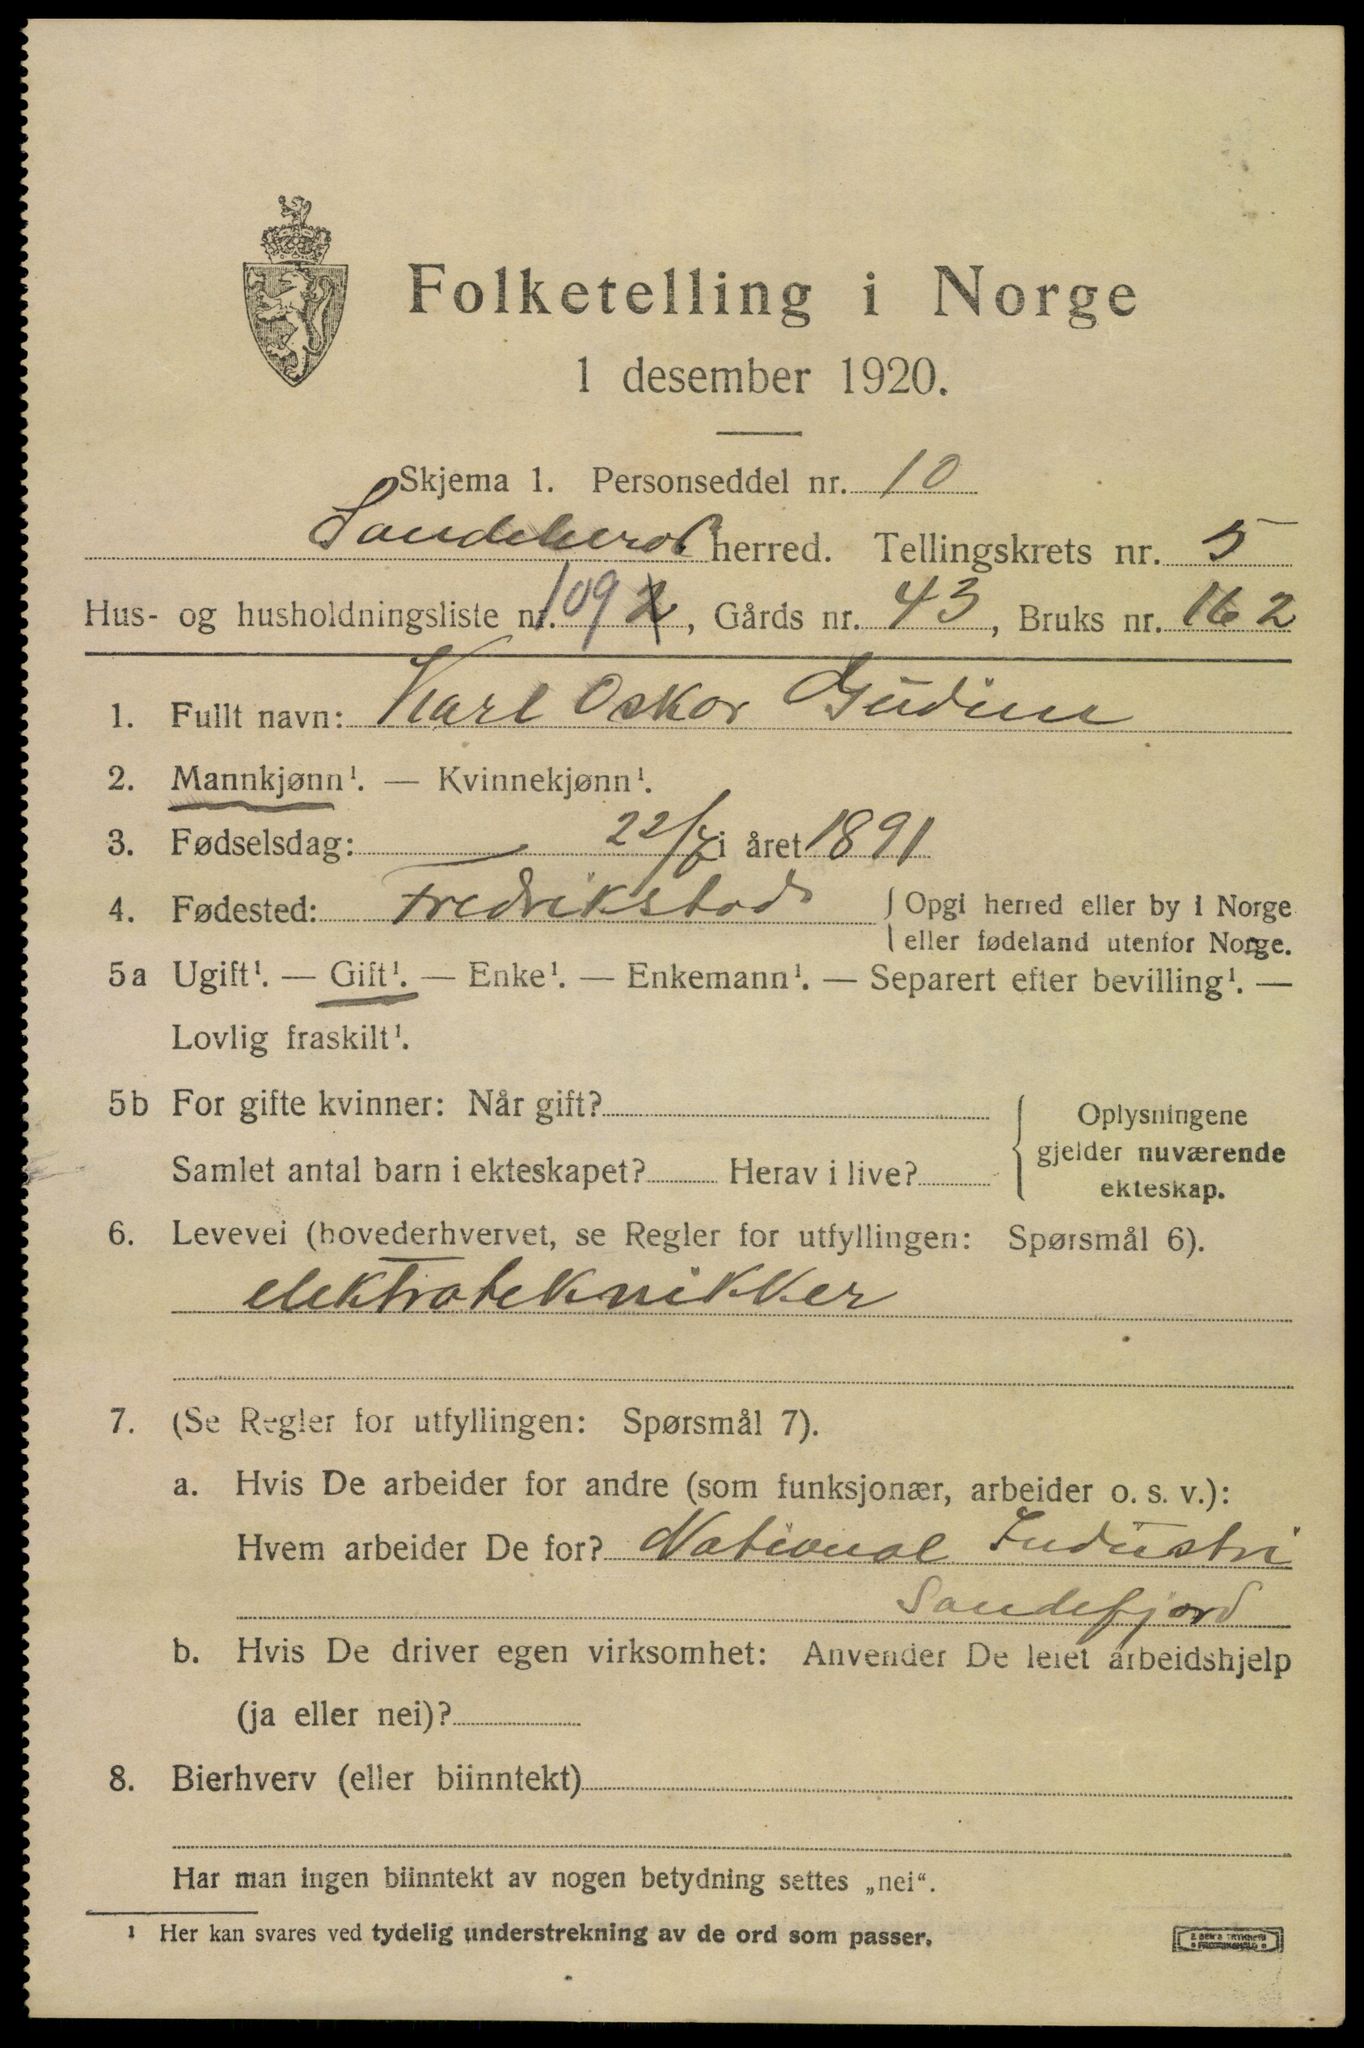 Folketelling i Norge
1 desember 1920.
Skjema 1. Personseddel nr. 10
Sandeherod herred. Tellingskrets nr. 5
Hus- og husholdningsliste nr. 109 2, Gårds nr. 43, Bruks nr. 162
1. Fullt navn: Karl Oskar Gudim
2. Mannkjønn¹. — Kvinnekjønn¹.
3. Fødselsdag: 22/7 i året 1891
4. Fødested: Fredrikstad { Opgi herred eller by i Norge
eller fødeland utenfor Norge.
5a Ugift¹. — Gift¹. — Enke¹. — Enkemann¹. — Separert efter bevilling¹. —
Lovlig fraskilt¹.
5b For gifte kvinner: Når gift?
Samlet antal barn i ekteskapet? Herav i live?
Oplysningene
gjelder nuværende
ekteskap.
6. Levevei (hovederhvervet, se Regler for utfyllingen: Spørsmål 6).
elektroteknikker
7. (Se Regler for utfyllingen: Spørsmål 7).
a. Hvis De arbeider for andre (som funksjonær, arbeider o. s. v.):
Hvem arbeider De for? National Industri
Sandefjord
b. Hvis De driver egen virksomhet: Anvender De leiet arbeidshjelp
(ja eller nei)?
8. Bierhverv (eller biinntekt)
Har man ingen biinntekt av nogen betydning settes „nei“.
¹ Her kan svares ved tydelig understrekning av de ord som passer.